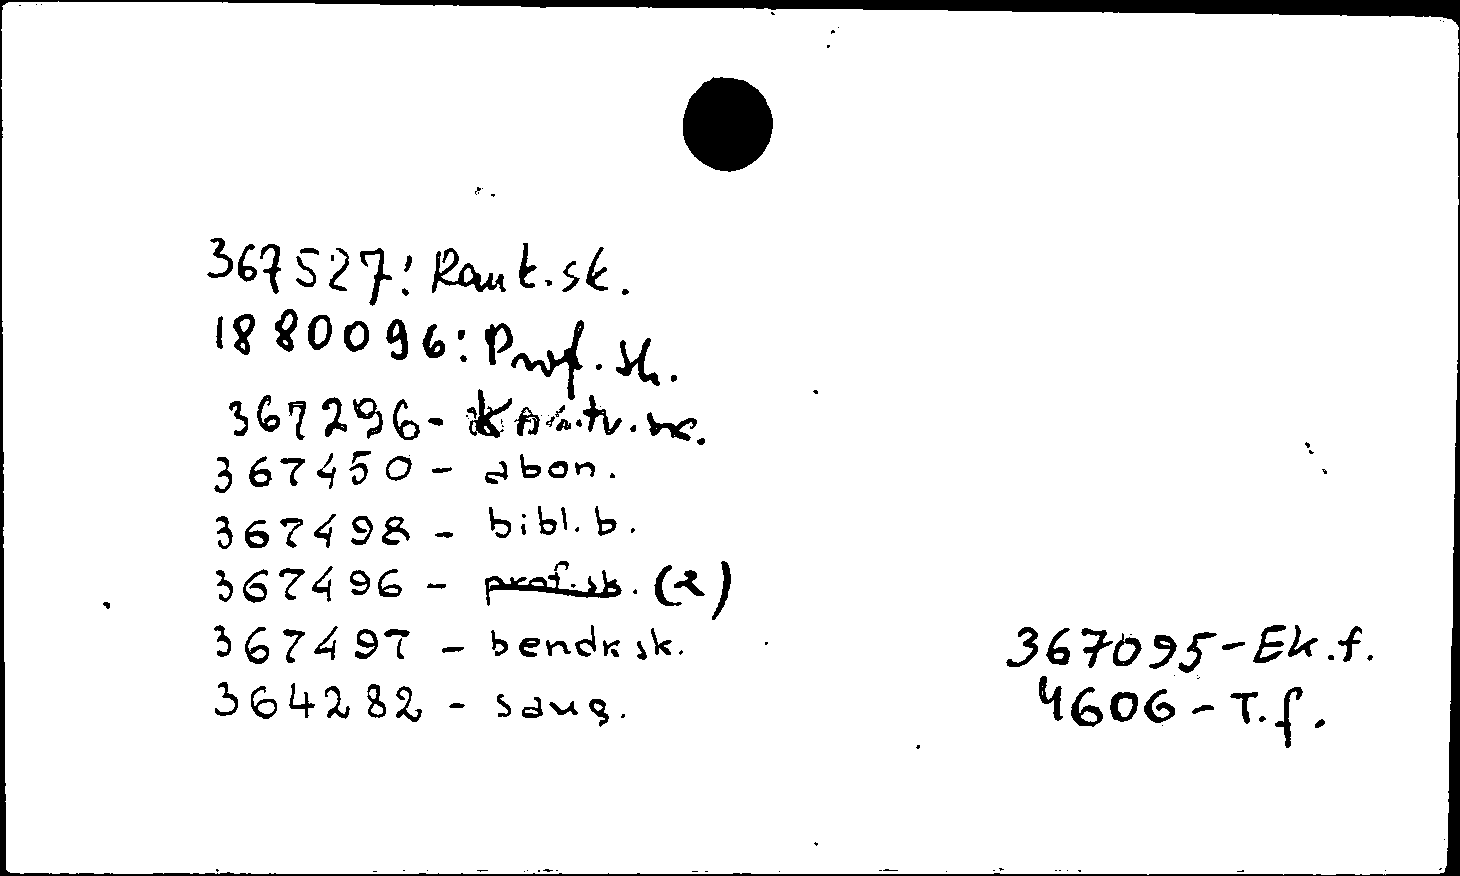 367527: Rank.sk.
1880096: Prof. sk.
367296-
367450 - abon.
367498 - bibl. b.
367496 - prof.sk. (2)
367497 - bendr.sk.
364282 - saug.
367095-Ek.f.
4606-T.f.